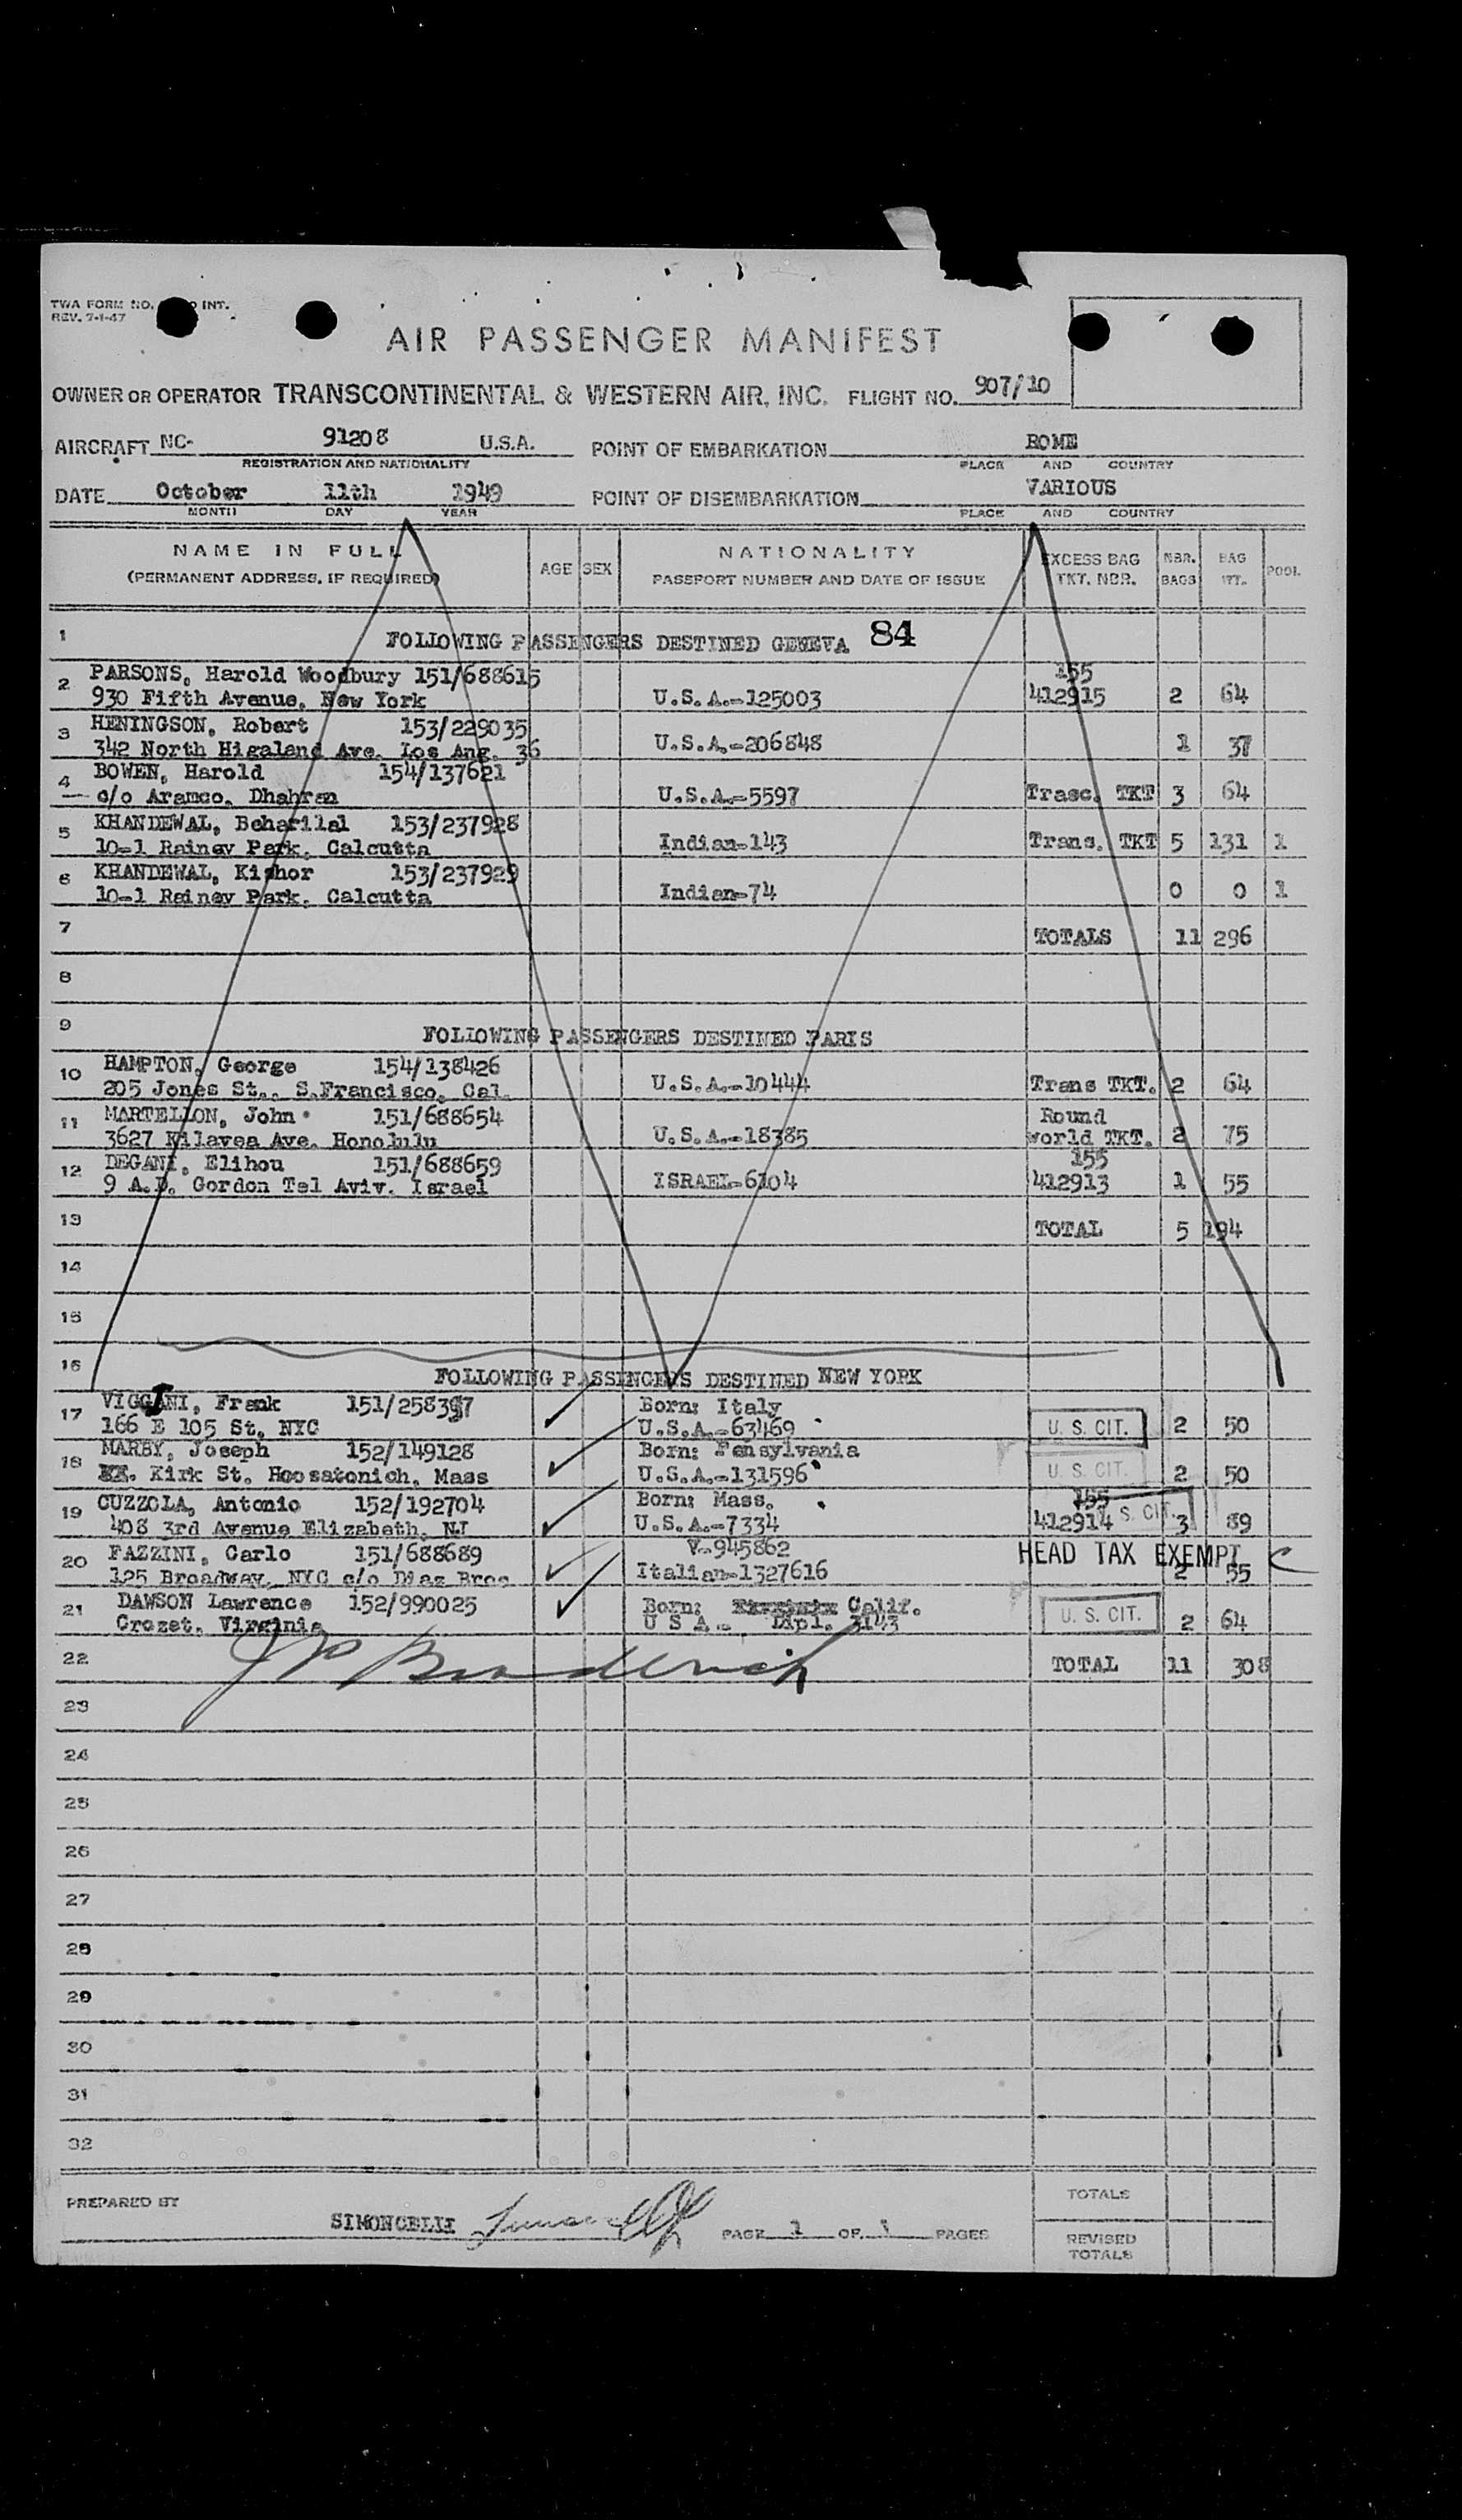 TWA FORM NO. INT.
REV. 7-1-47
AIR PASSENGER MANIFEST
OWNER OR OPERATOR TRANSCONTINENTAL & WESTERN AIR, INC. FLIGHT NO. 907/10
AIRCRAFT NC- 91208 U.S.A. POINT OF EMBARKATION ROME
REGISTRATION AND NATIONALITY PLACE AND COUNTRY
DATE October 11th 1949 POINT OF DISEMBARKATION VARIOUS
MONTH DAY YEAR PLACE AND COUNTRY
NAME IN FULL
(PERMANENT ADDRESS, IF REQUIRED)
AGE SEX
NATIONALITY
PASSPORT NUMBER AND DATE OF ISSUE
EXCESS BAG
TKT. NBR.
NBR.
BAGS
BAG
WT.
POOL
1 FOLLOWING PASSENGERS DESTINED GENEVA 84
2 PARSONS, Harold Woodbury 151/688615 155
930 Fifth Avenue, New York U.S.A.-125003 412915 2 64
3 HENINGSON, Robert 153/229035
342 North Higaland Ave. Los Ang. 36 U.S.A.-206848 1 37
4 BOWEN, Harold 154/137621
c/o Aramco, Dhahran U.S.A.-5597 Trasc. TKT 3 64
5 KHANDEWAL, Beharilal 153/237928
10-1 Rainey Park, Calcutta Indian-143 Trans. TKT 5 131 1
6 KHANDEWAL, Kishor 153/237929
10-1 Rainey Park, Calcutta Indian-74 0 0 1
7 TOTALS 11 296
8
9 FOLLOWING PASSENGERS DESTINED PARIS
10 HAMPTON, George 154/138426
205 Jones St., S.Francisco, Cal. U.S.A.-10444 Trans TKT. 2 64
11 MARTELLON, John 151/688654 Round
3627 Kilavea Ave. Honolulu U.S.A.-18385 world TKT. 2 75
12 DEGANI, Elihou 151/688659 155
9 A.D. Gordon Tel Aviv. Israel ISRAEL-6104 412913 1 55
13 TOTAL 5 194
14
15
16 FOLLOWING PASSINGERS DESTINED NEW YORK
17 VIGGIANI, Frank 151/258397 Born: Italy
166 E 105 St, NYC U.S.A.-63469 U. S. CIT. 2 50
18 MARBY, Joseph 152/149128 Born: Pensylvania
Kirk St. Hoosatonich, Mass U.S.A.-131596 U. S. CIT. 2 50
19 CUZZOLA, Antonio 152/192704 Born: Mass. 155
408 3rd Avenue Elizabeth, NJ U.S.A.-7334 412914 S. CIT. 3 89
20 FAZZINI, Carlo 151/688689 V-945862 HEAD TAX EXEMPT
125 Broadway, NYC c/o Diaz Bros Italian-1327616 2 55
21 DAWSON Lawrence 152/990025 Born: Calif.
Crozet, Virginia U S A.- Dipl. 3143 U. S. CIT. 2 64
22 TOTAL 11 308
23
24
25
26
27
28
29
30
31
32
PREPARED BY
SIMONCELLI PAGE 1 OF 1 PAGES
TOTALS
REVISED
TOTALS